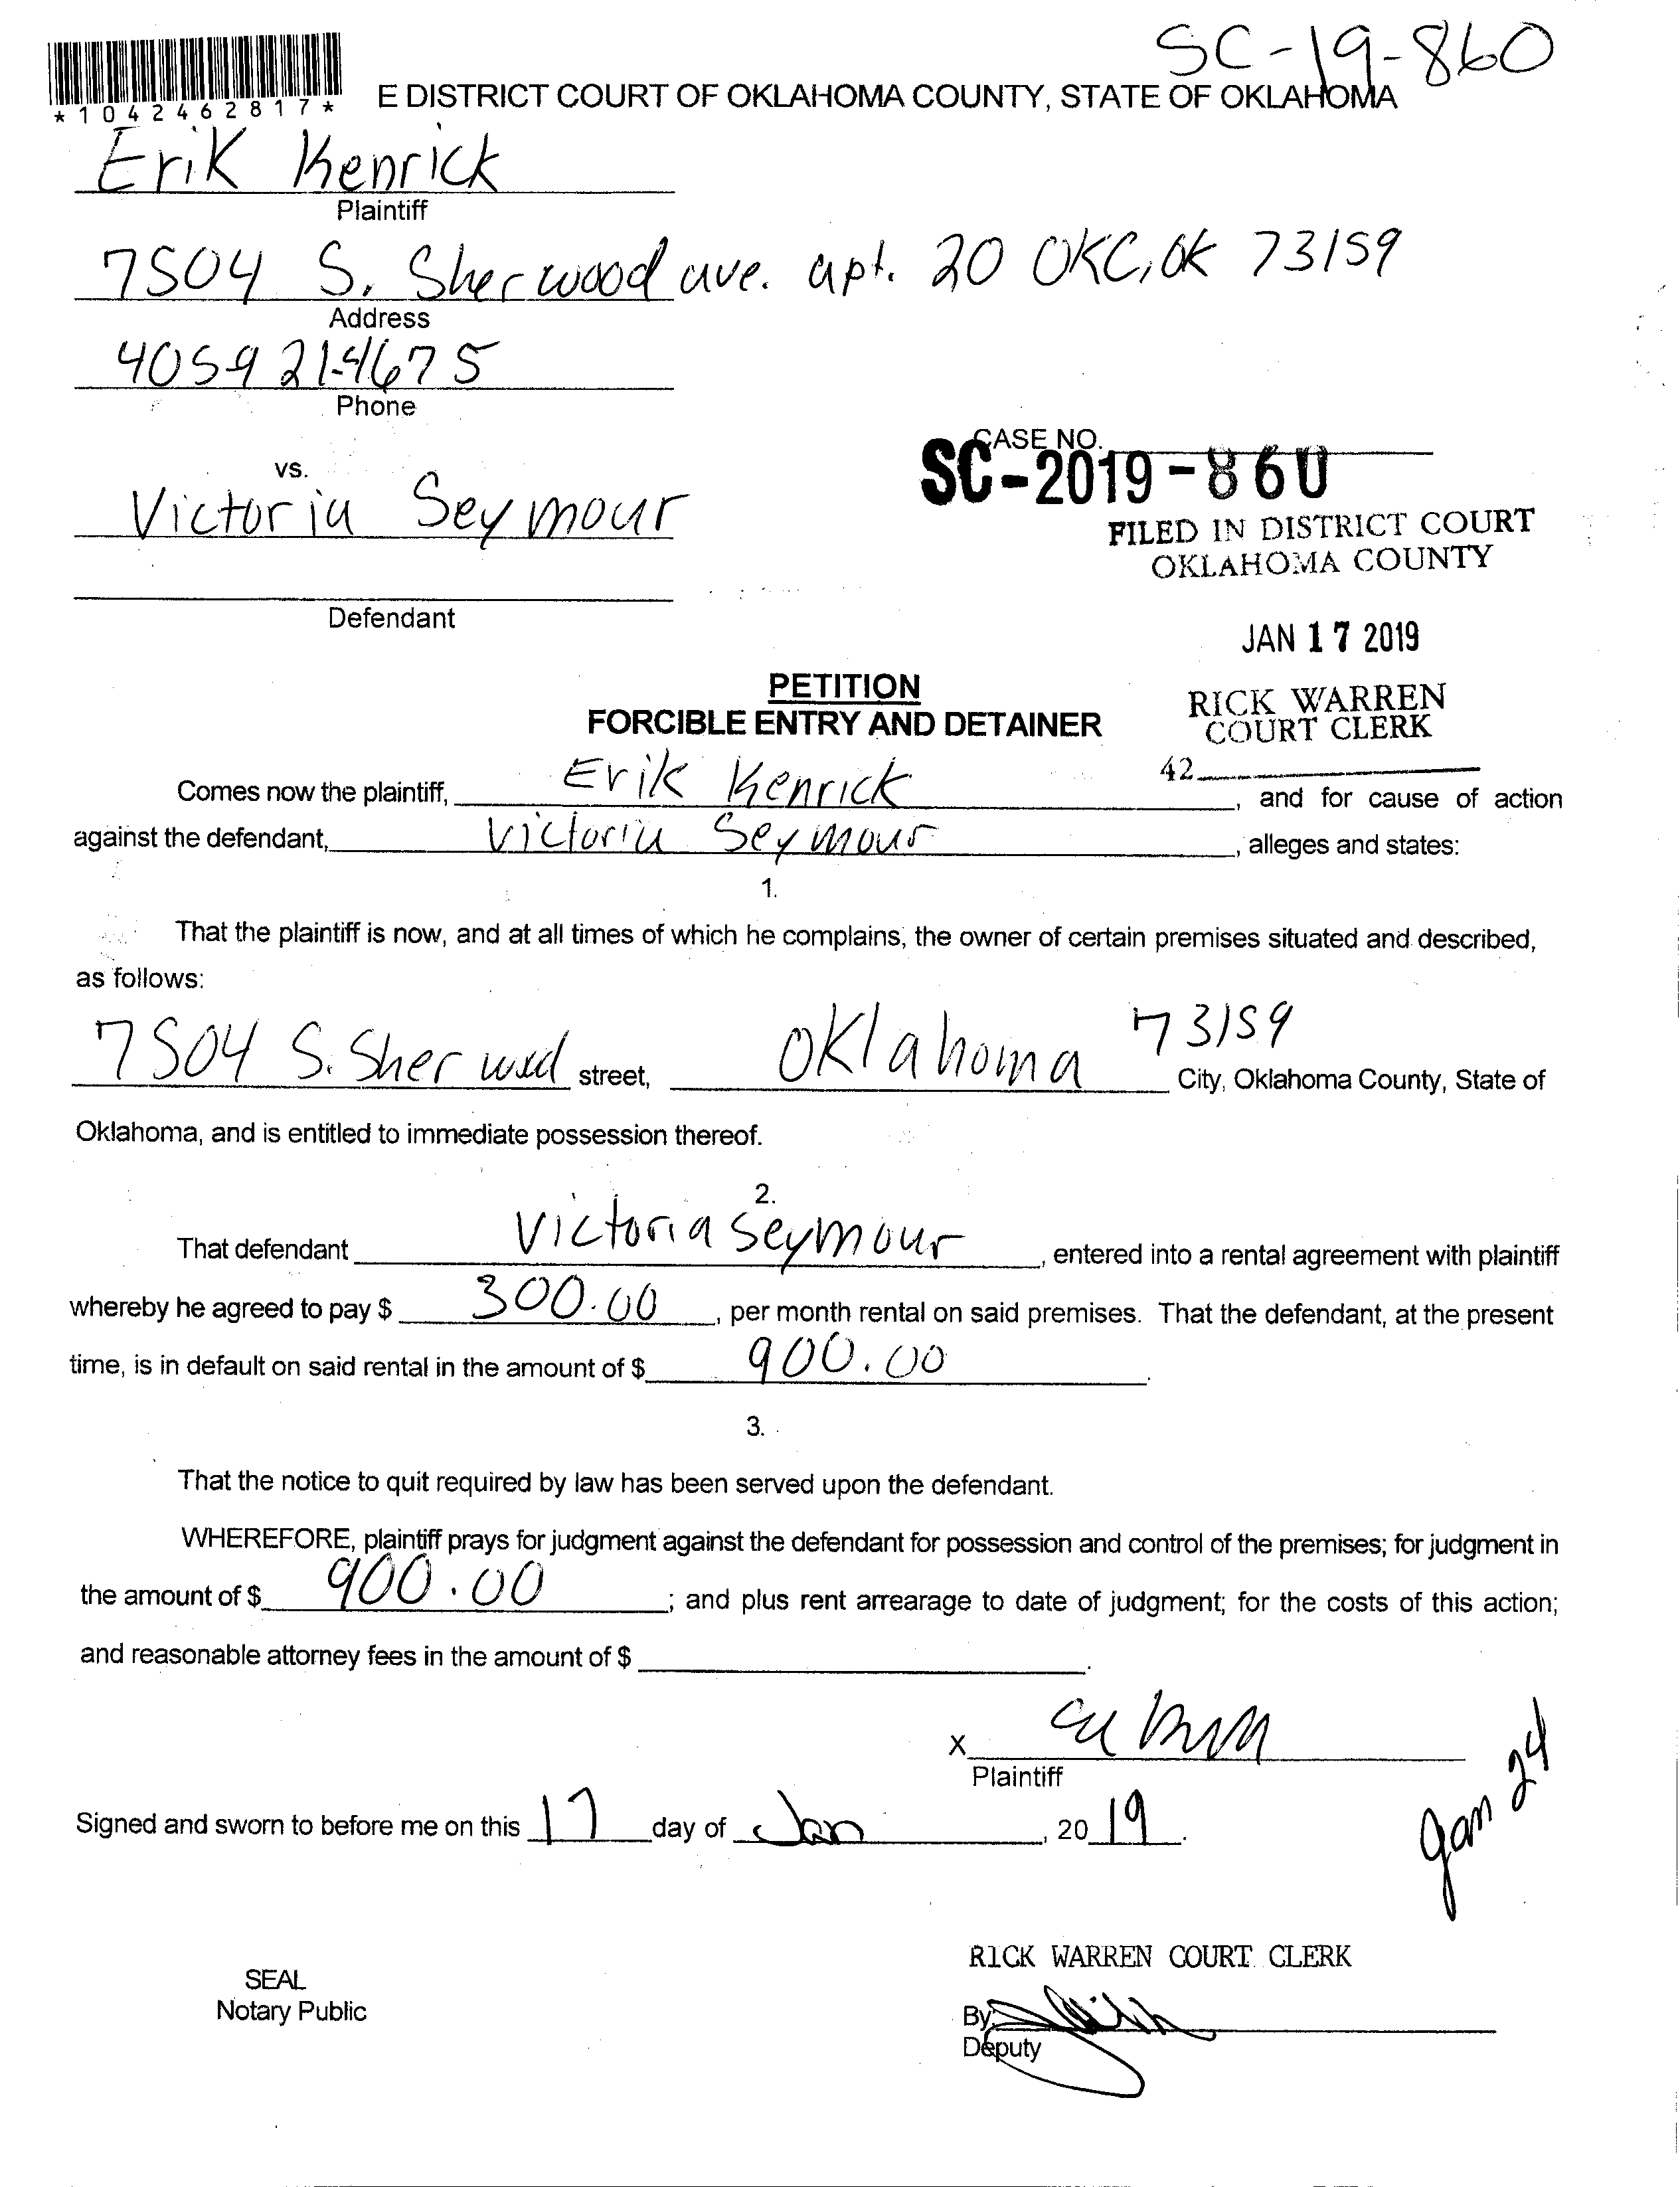 SC-19-860
*1042462817*
E DISTRICT COURT OF OKLAHOMA COUNTY, STATE OF OKLAHOMA
Erik Kenrick
Plaintiff
7504 S. Sherwood ave. apt. 20 OKC, OK 73159
Address
405921-4675
Phone
vs.
CASE NO.
SC-2019-860
Victoria Seymour
FILED IN DISTRICT COURT
OKLAHOMA COUNTY
Defendant
JAN 17 2019
PETITION
FORCIBLE ENTRY AND DETAINER
RICK WARREN
COURT CLERK
42
Comes now the plaintiff, Erik Kenrick, and for cause of action
against the defendant, Victoria Seymour, alleges and states:
1.
That the plaintiff is now, and at all times of which he complains, the owner of certain premises situated and described,
as follows:
7504 S. Sherwood street, Oklahoma 73159 City, Oklahoma County, State of
Oklahoma, and is entitled to immediate possession thereof.
2.
That defendant Victoria Seymour, entered into a rental agreement with plaintiff
whereby he agreed to pay $ 300.00, per month rental on said premises. That the defendant, at the present
time, is in default on said rental in the amount of $ 900.00.
3.
That the notice to quit required by law has been served upon the defendant.
WHEREFORE, plaintiff prays for judgment against the defendant for possession and control of the premises; for judgment in
the amount of $ 900.00; and plus rent arrearage to date of judgment; for the costs of this action;
and reasonable attorney fees in the amount of $ .
X
Plaintiff
Signed and sworn to before me on this 17 day of Jan, 2019.
Jan 24
RICK WARREN COURT CLERK
SEAL
Notary Public
By:
Deputy